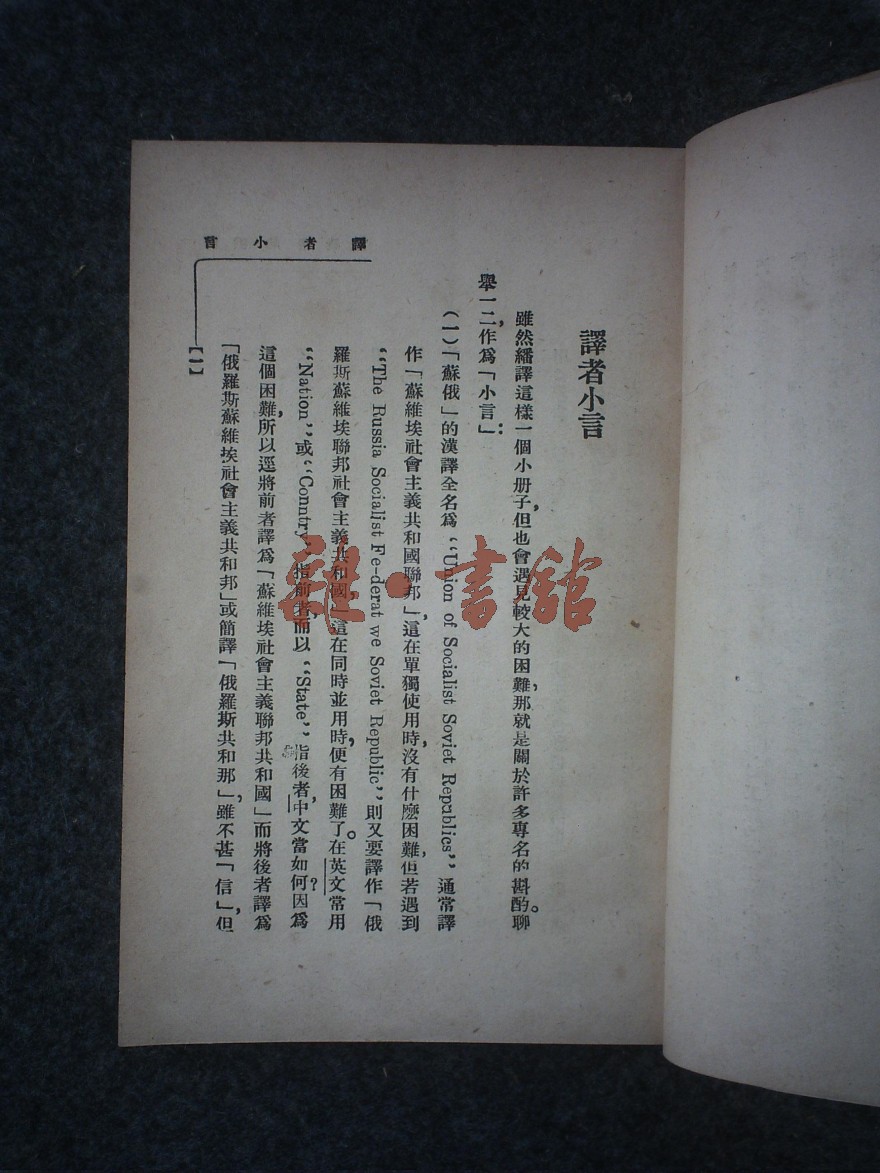 譯者小言
譯者小言
雖然繙譯這樣一個小册子,但也會遇見較大的困難,那就是關於許多專名的斟酌。聊
舉一二,作爲「小言」:
(一)「蘇俄」的漢譯全名爲“Union of Socialist Soviet Republics”通常譯
作「蘇維埃社會主義共和國聯邦」,這在單獨使用時,沒有什麽困難,但若遇到
“The Russia Socialist Fe-derat we Soviet Republic”,則又要譯作「俄
羅斯蘇維埃聯邦社會主義共和國,」這在同時並用時,便有困難了。在英文常用
“Nation”或“Conntry”指前者,而以“State”指後者,中文當如何?因爲
這個困難,所以逕將前者譯爲「蘇維埃社會主義聯邦共和國」而將後者譯爲
「俄羅斯蘇維埃社會主義共和邦」或簡譯「俄羅斯共和那」,雖不甚「信」,但
【一】
雜·書館